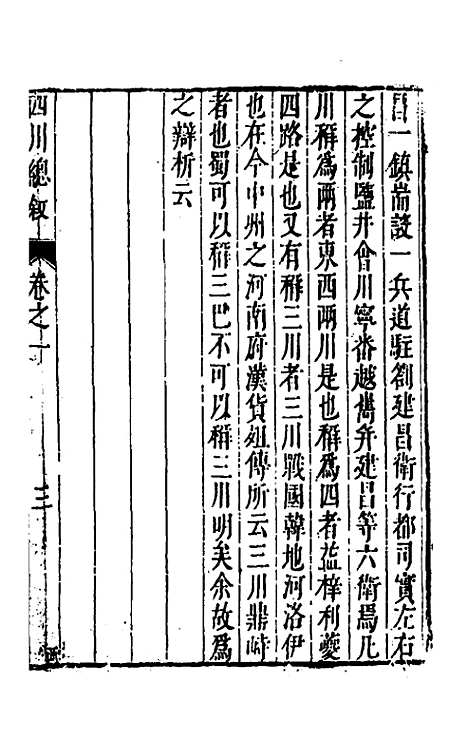 昌一鎮耑設一兵道駐劄建昌衛行都司實左右
之控制鹽井會川寧番越嶲并建昌等六衛焉凡
川稱爲兩者東西兩川是也稱爲四者益梓利夔
四路是也又有稱三川者三川戰國韓地河洛伊
也在今中州之河南府漢貨殖傳所云三川鼎峙
者也蜀可以稱三巴不可以稱三川明矣余故爲
之辯析云
四川總敘
卷之一
三